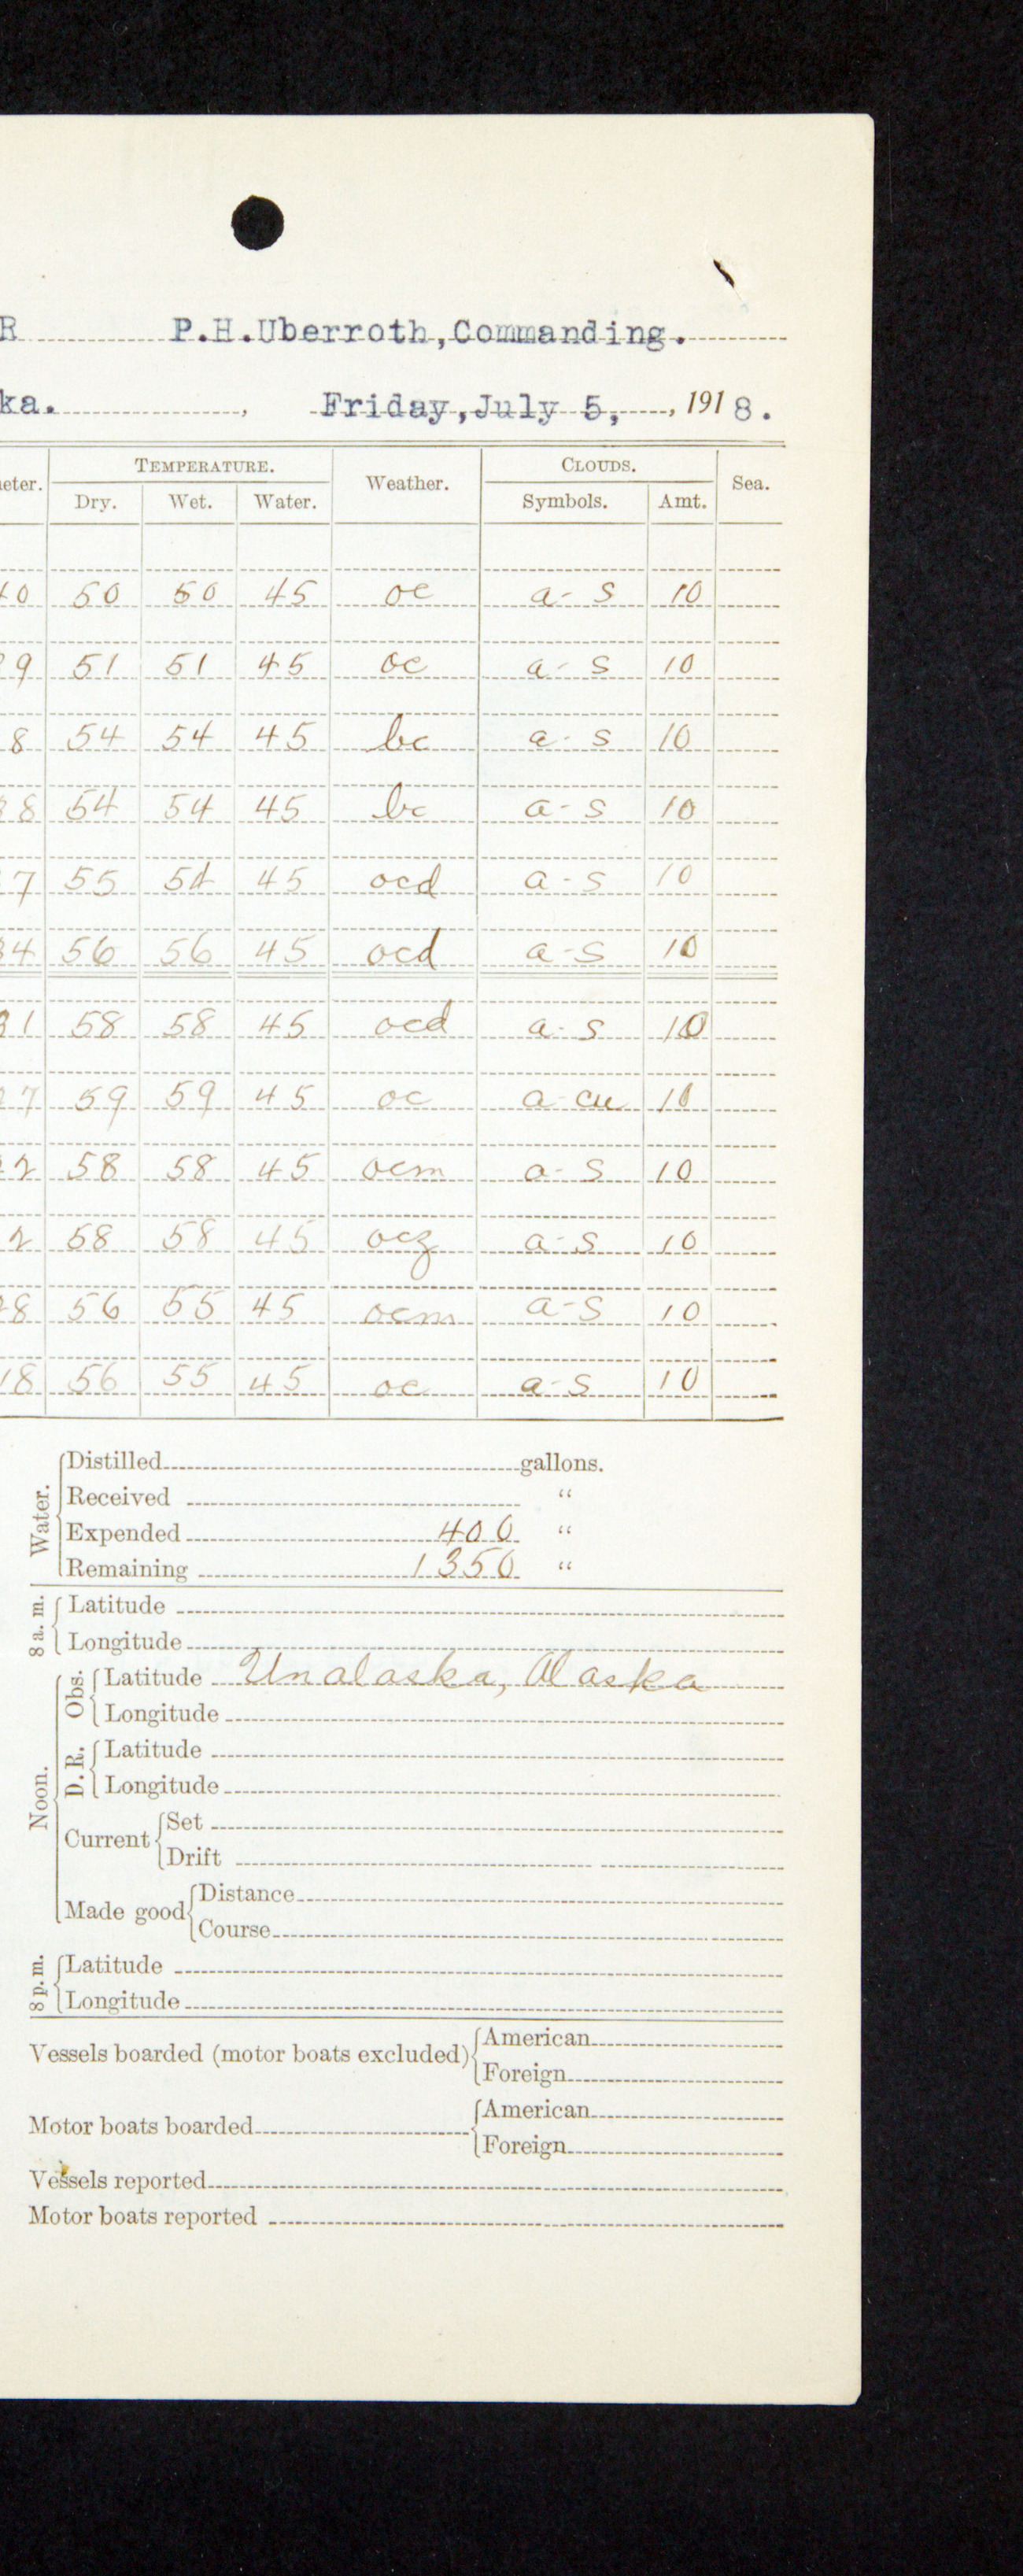 R P.H.Uberroth,Commanding.
ka. , Friday,July 5, , 1918.
eter. TEMPERATURE. Weather. CLOUDS. Sea.
Dry. Wet. Water. Symbols. Amt.
40 50 50 45 oc a-s 10
9 51 51 45 oc a-s 10
8 54 54 45 bc a-s 10
8 54 54 45 bc a-s 10
7 55 54 45 ocd a-s 10
4 56 56 45 ocd a-s 10
1 58 58 45 ocd a-s 10
7 59 59 45 oc a-cu 10
2 58 58 45 ocm a-s 10
2 58 58 45 ocz a-s 10
8 56 55 45 ocm a-s 10
18 56 55 45 oc a-s 10
Water.
Distilled gallons.
Received "
Expended 400 "
Remaining 1350 "
8 a. m.
Latitude
Longitude
Noon.
Obs.
Latitude Unalaska, Alaska
Longitude
D. R.
Latitude
Longitude
Current
Set
Drift
Made good
Distance
Course
8 p. m.
Latitude
Longitude
Vessels boarded (motor boats excluded)
American
Foreign
Motor boats boarded
American
Foreign
Vessels reported
Motor boats reported